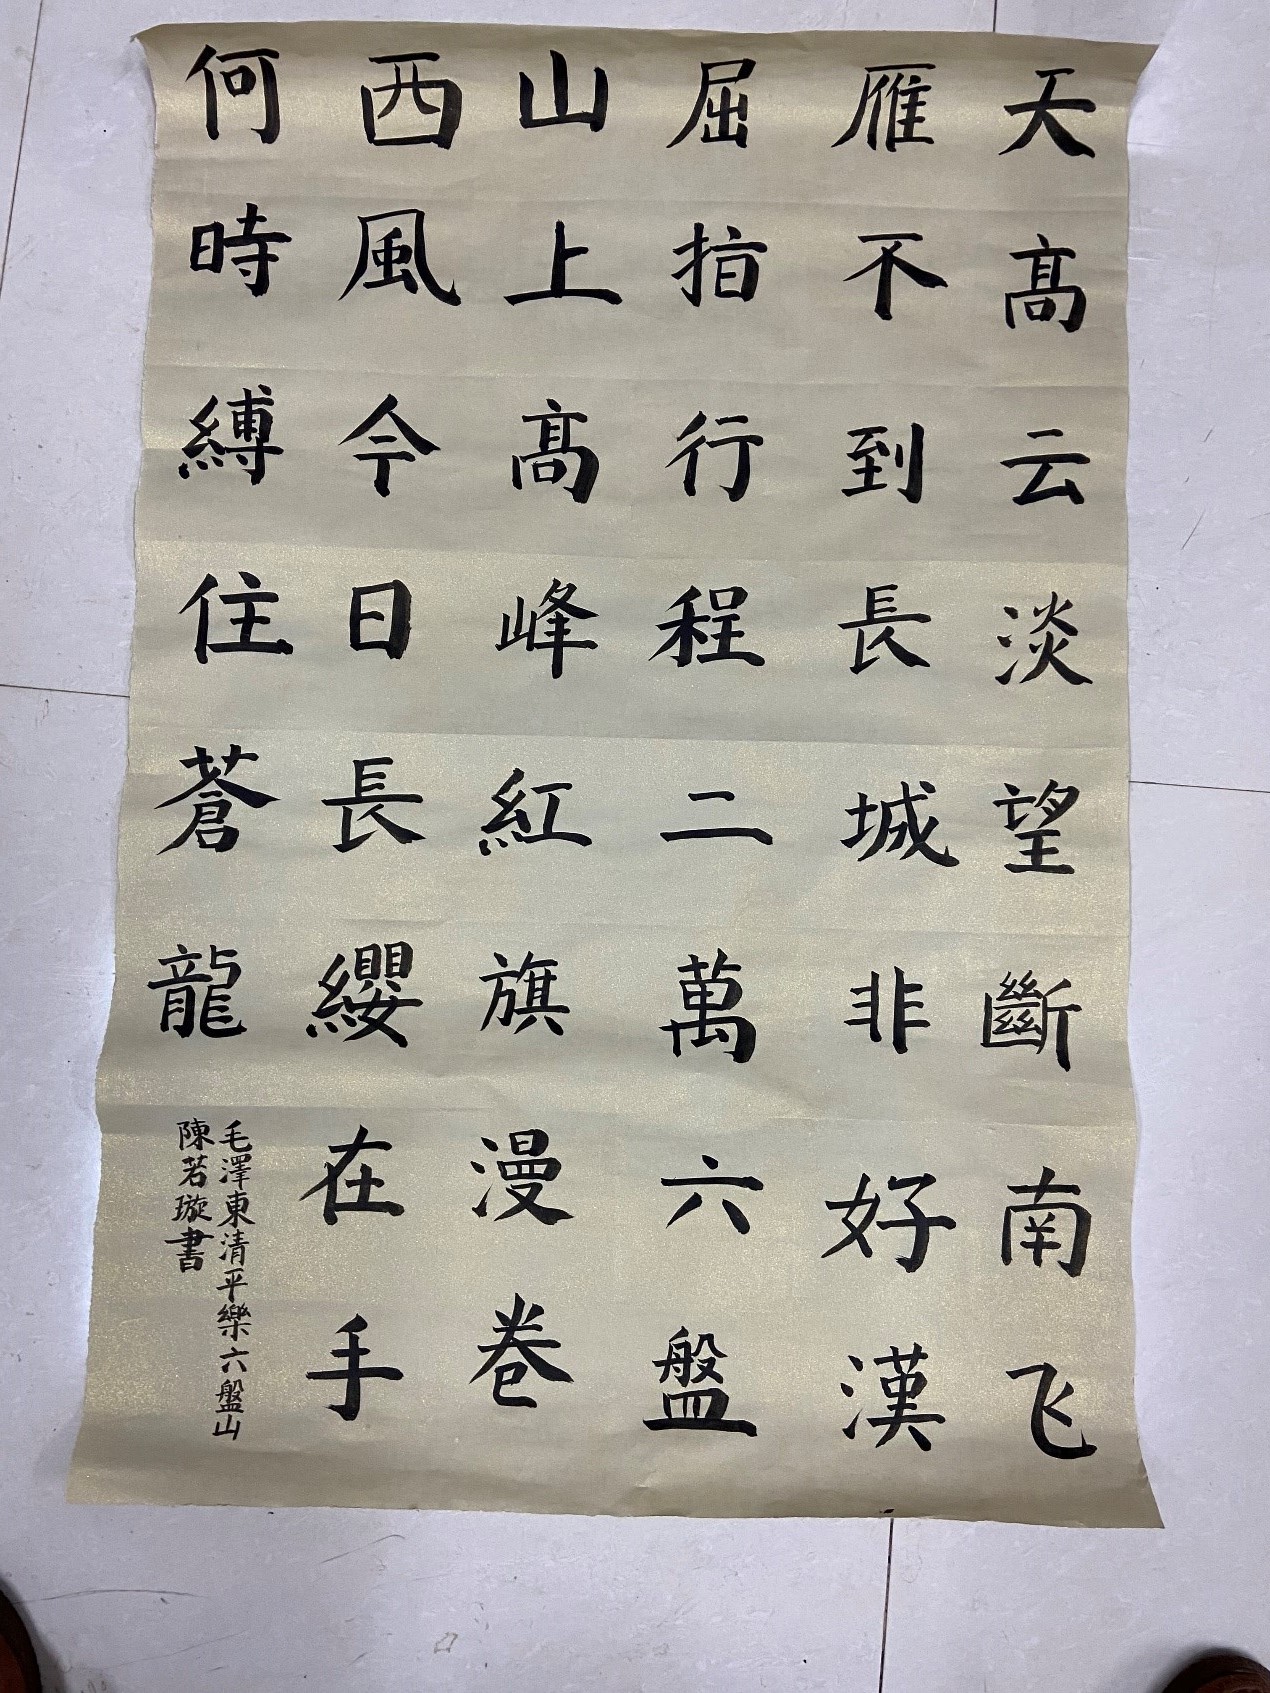 天高云淡望斷南飞
雁不到長城非好漢
屈指行程二萬六盤
山上高峰紅旗漫卷
西風今日長纓在手
何時縛住蒼龍
毛澤東清平樂六盤山
陳若璇書